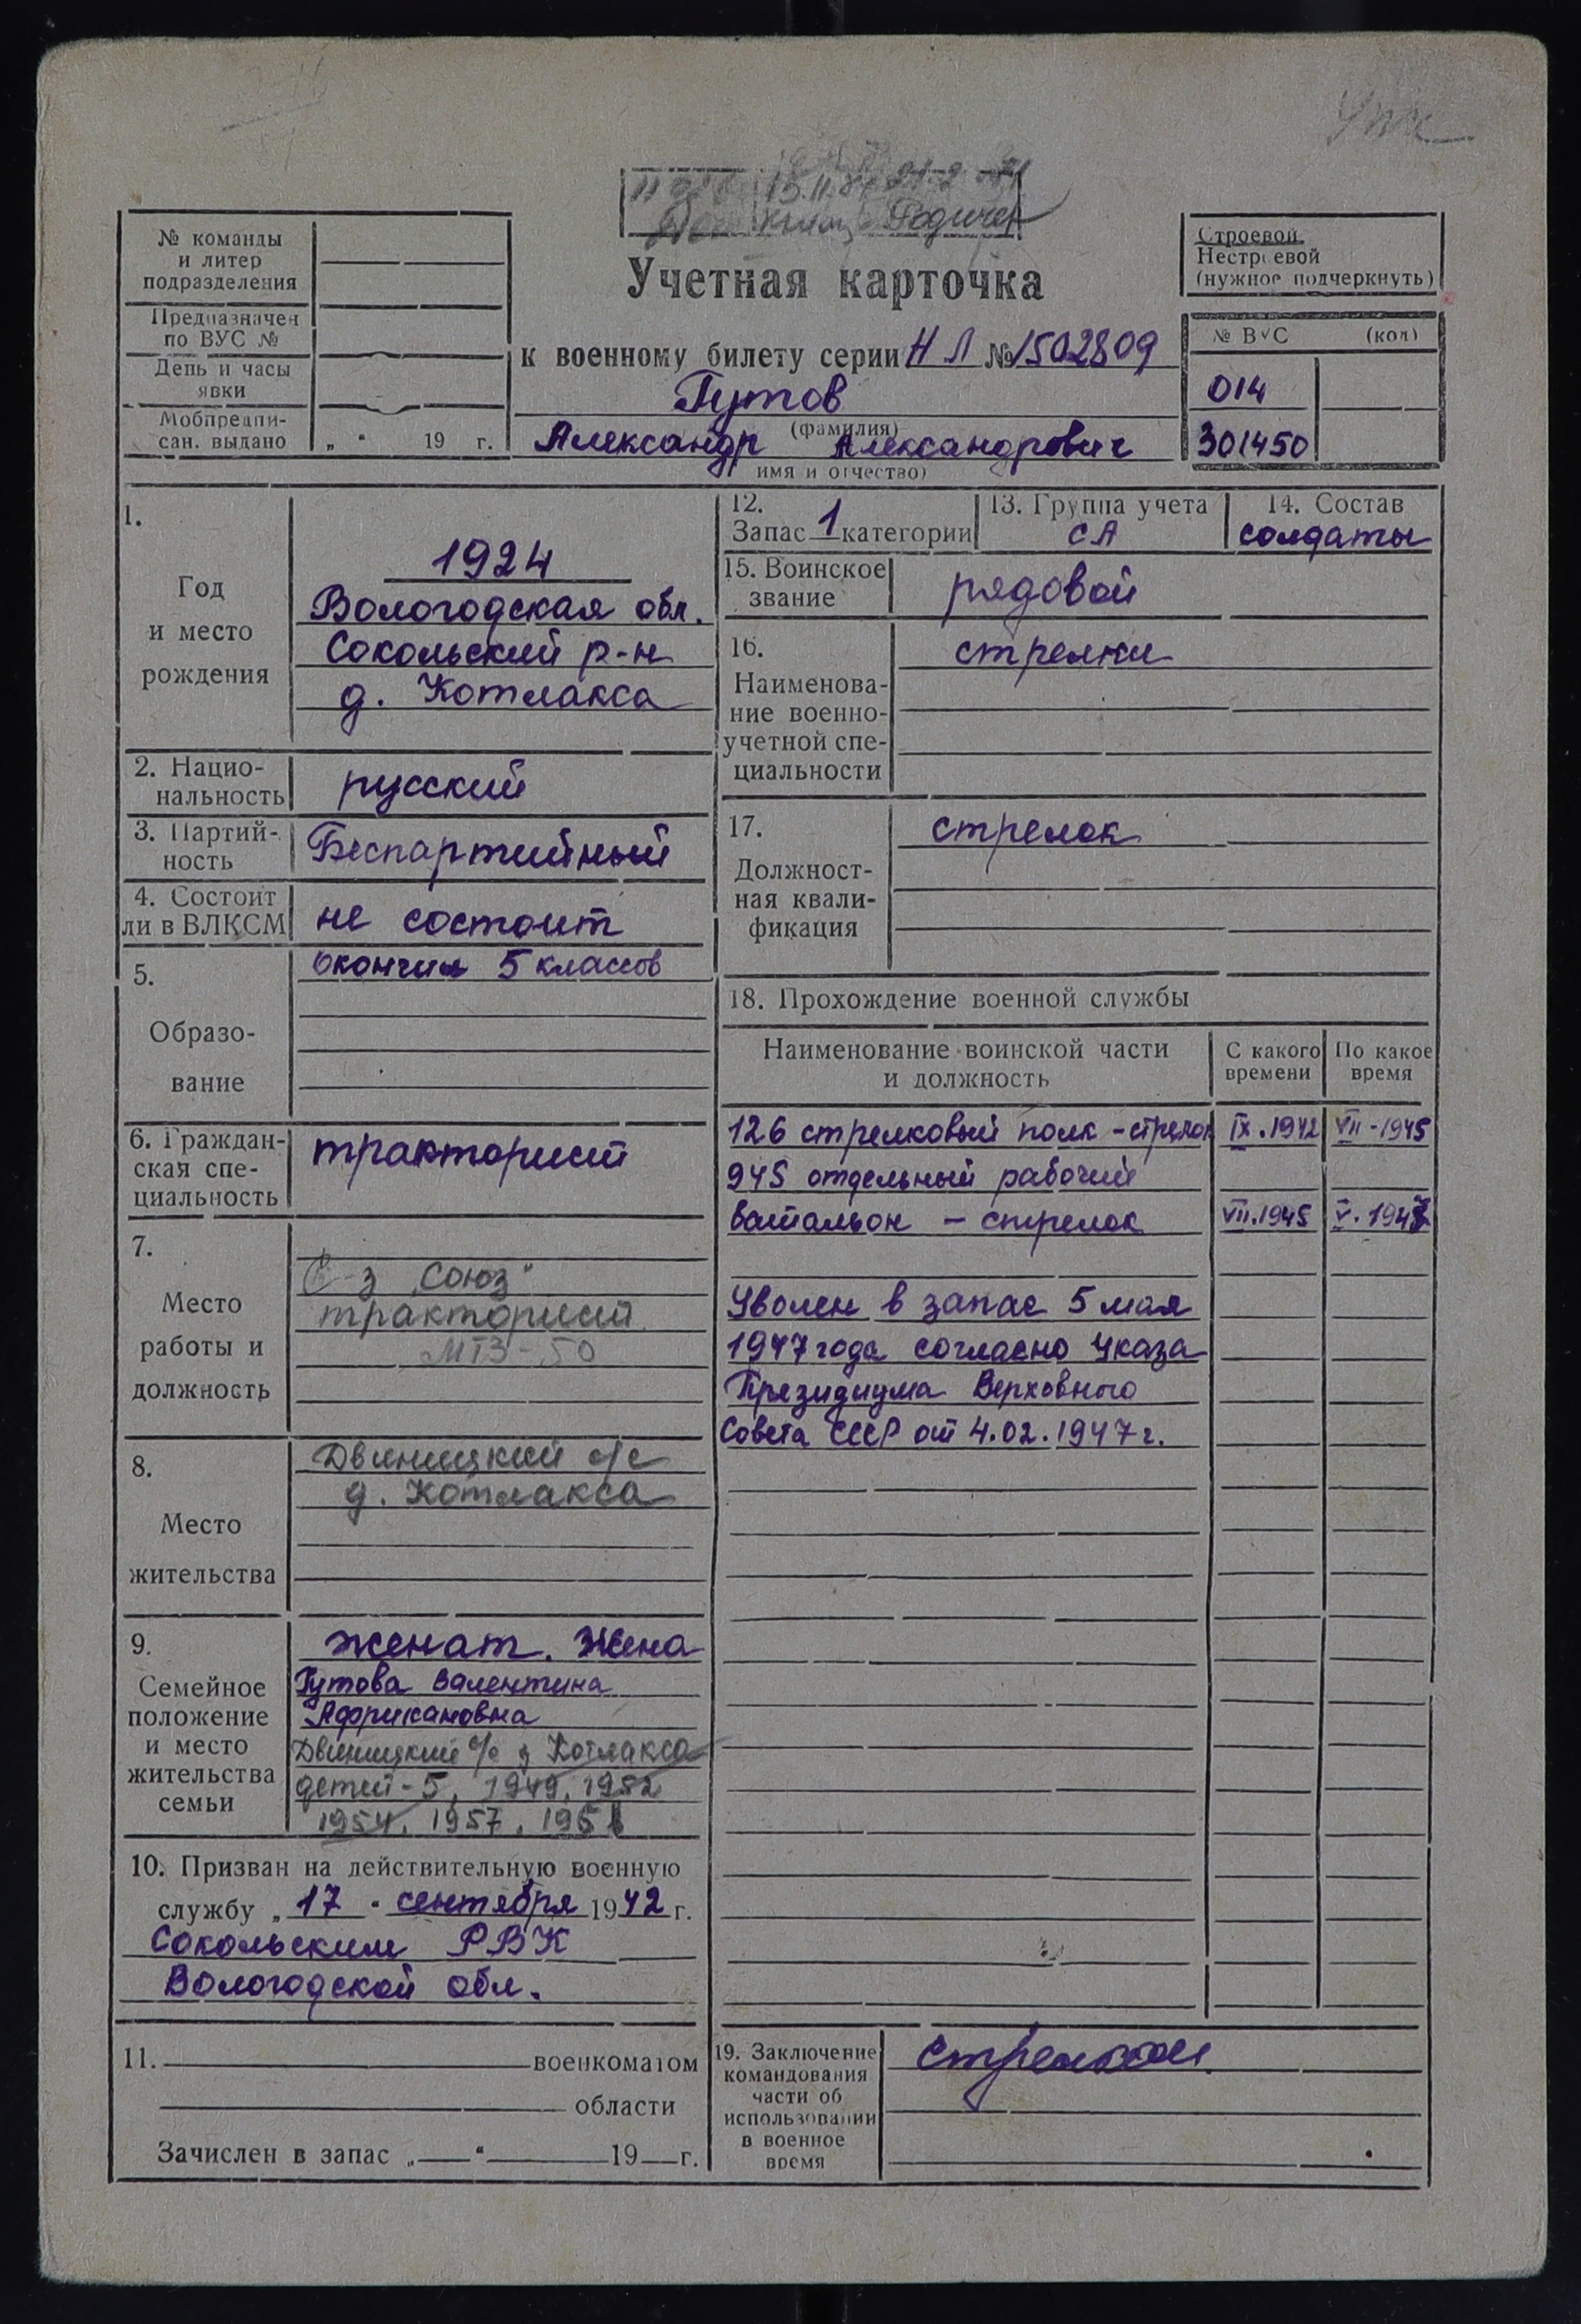 № команды
и литер
подразделения
Предназначен
по ВУС №
День и часы
явки
Мобпредпи-
сан. выдано „ “ 19 г.
Учетная карточка
к военному билету серии НЛ № 1502809
Гутов
(фамилия)
Александр Александрович
имя и отчество)
Строевой
Нестроевой
(нужное подчеркнуть)
№ ВУС (код)
014
301450
1.
Год
и место
рождения
1924
Вологодская обл.
Сокольский р-н
д. Котлакса
2. Нацио-
нальность
русский
3. Партий-
ность
Беспартийный
4. Состоит
ли в ВЛКСМ
не состоит
5.
Образо-
вание
Окончил 5 классов
6. Граждан-
ская спе-
циальность
тракторист
7.
Место
работы и
должность
С-з „Союз“
тракторист
МТЗ-50
8.
Место
жительства
Двиницкий с/с
д. Котлакса
9.
Семейное
положение
и место
жительства
семьи
женат. Жена
Гутова Валентина
Африкановна
Двиницкий с/с д Котлакса
детей-5, 1949, 1952
1954, 1957, 1961
10. Призван на действительную военную
службу „ 17 “ сентября 1942 г.
Сокольским РВК
Вологодской обл.
11. военкоматом
области
Зачислен в запас „ “ 19 г.
12.
Запас 1 категории
13. Группа учета
СА
14. Состав
солдаты
15. Воинское
звание
рядовой
16.
Наименова-
ние военно-
учетной спе-
циальности
стрелки
17.
Должност-
ная квали-
фикация
стрелок
18. Прохождение военной службы
Наименование воинской части
и должность
С какого
времени
По какое
время
126 стрелковый полк - стрелок IX.1942 VII-1945
945 отдельный рабочий
батальон - стрелок VII.1945 V.1947
Уволен в запас 5 мая
1947 года согласно Указа
Президиума Верховного
Совета СССР от 4.02.1947 г.
19. Заключение
командования
части об
использовании
в военное
время
стрелком